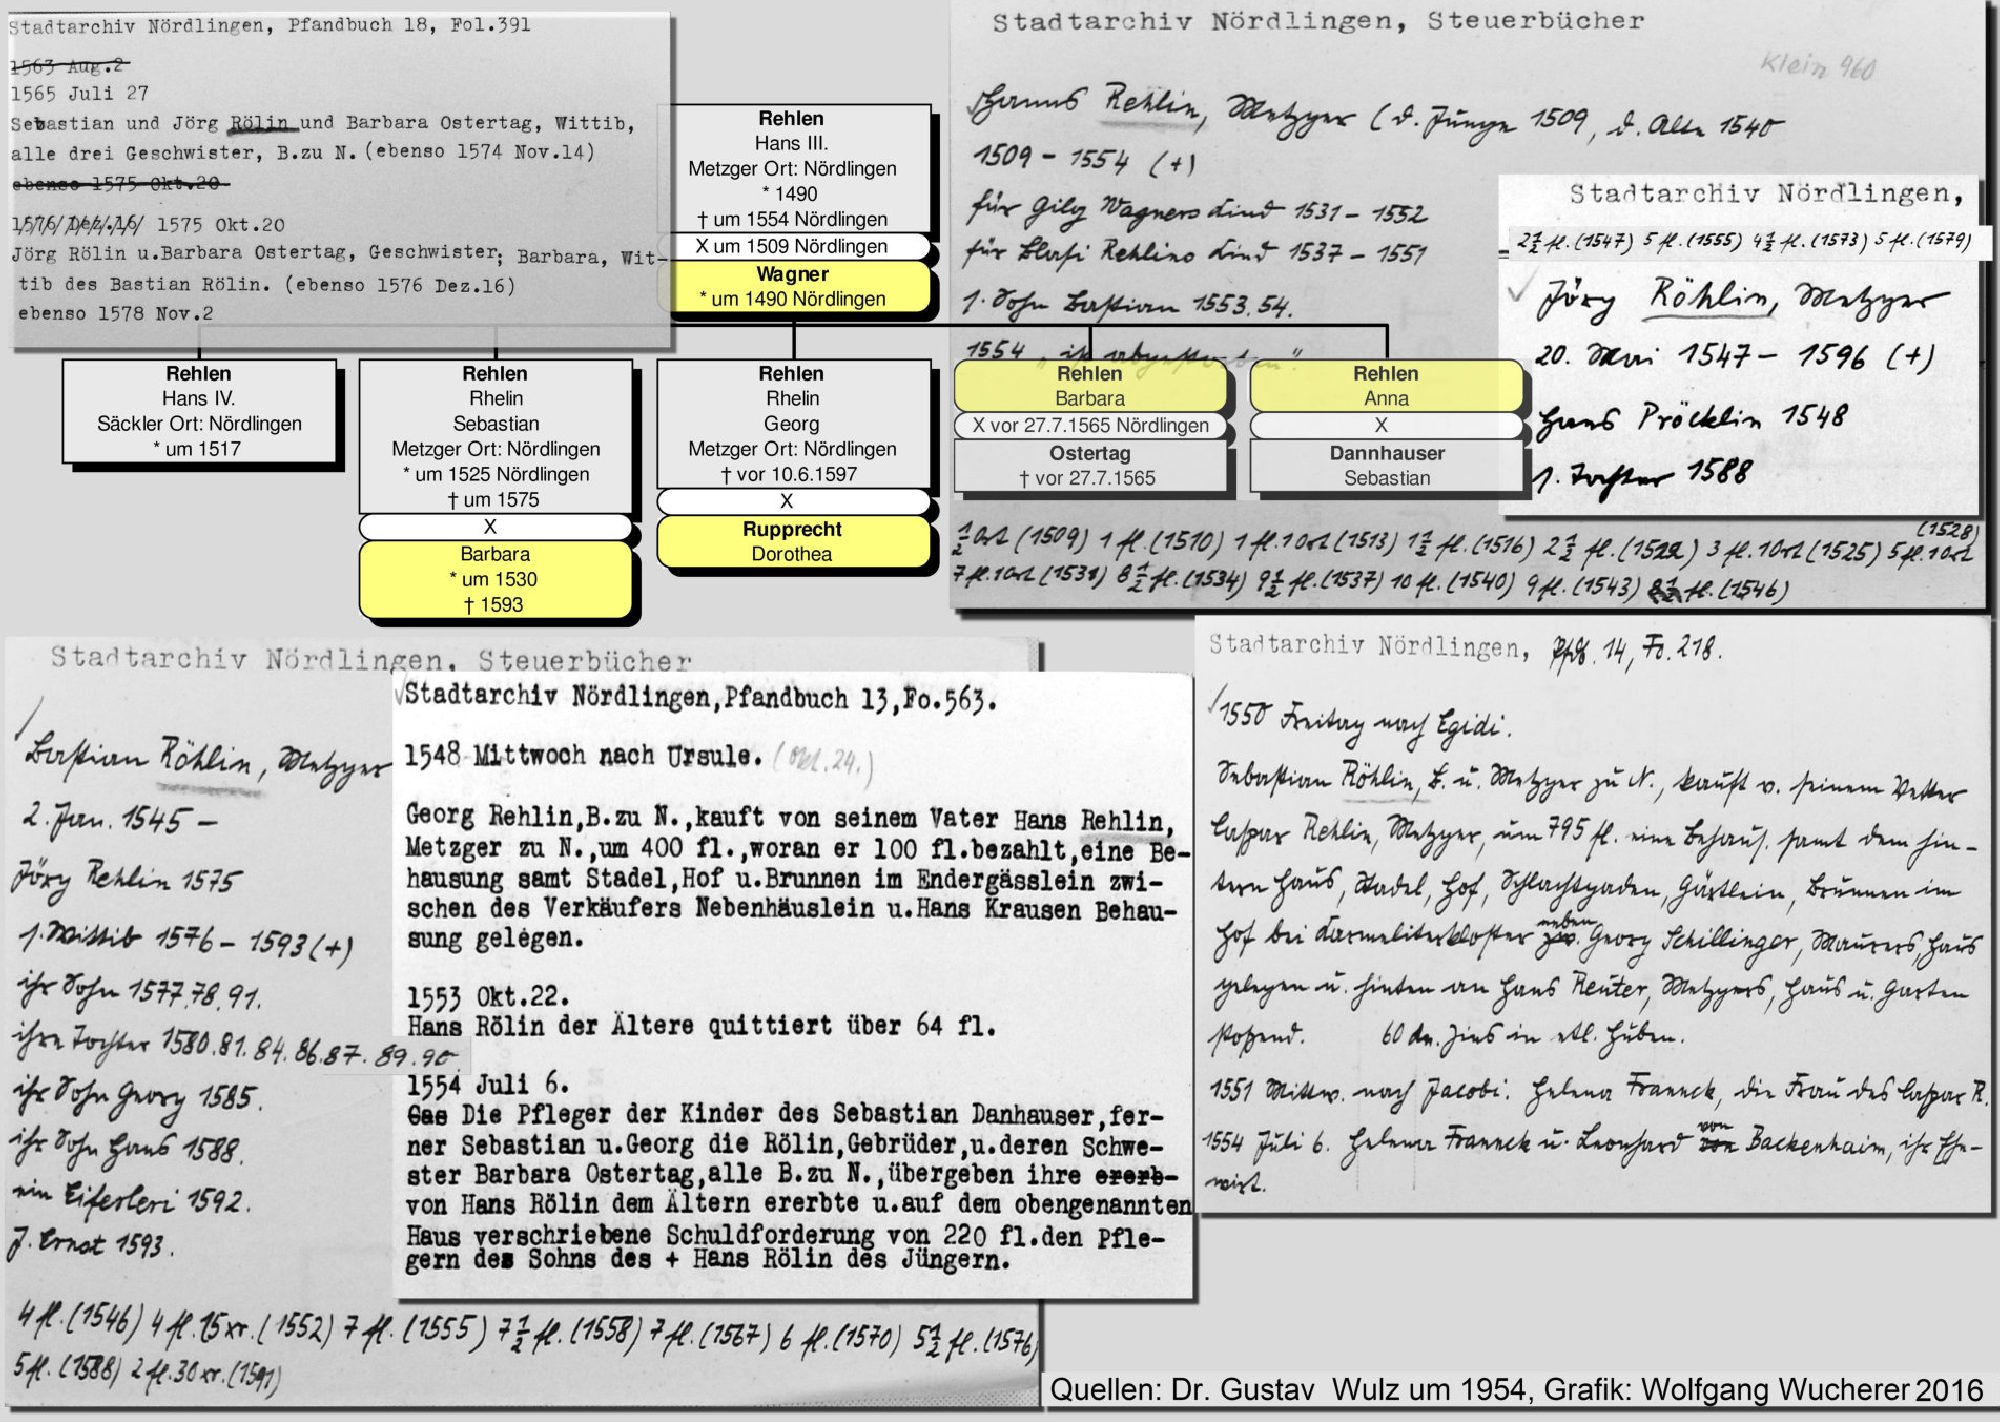 Stadtarchiv Nördlingen, Pfandbuch 18, Fol.391
1563 Aug.2
1565 Juli 27
Sebastian und Jörg Rölin und Barbara Ostertag, Wittib,
alle drei Geschwister, B.zu N. (ebenso 1574 Nov.14)
ebenso 1575 Okt.20
1576/Dez.16/ 1575 Okt.20
Jörg Rölin u.Barbara Ostertag, Geschwister; Barbara, Wit-
tib des Bastian Rölin. (ebenso 1576 Dez.16)
ebenso 1578 Nov.2
Rehlen
Hans III.
Metzger Ort: Nördlingen
* 1490
† um 1554 Nördlingen
X um 1509 Nördlingen
Wagner
* um 1490 Nördlingen
Rehlen
Hans IV.
Säckler Ort: Nördlingen
* um 1517
Rehlen
Rhelin
Sebastian
Metzger Ort: Nördlingen
* um 1525 Nördlingen
† um 1575
X
Barbara
* um 1530
† 1593
Rehlen
Rhelin
Georg
Metzger Ort: Nördlingen
† vor 10.6.1597
X
Rupprecht
Dorothea
Rehlen
Barbara
X vor 27.7.1565 Nördlingen
Ostertag
† vor 27.7.1565
Rehlen
Anna
X
Dannhauser
Sebastian
Stadtarchiv Nördlingen, Steuerbücher
Klein 960
Hanns Rehlin, Metzger (d. Junge 1509, d. Alte 1540
1509 - 1554 (+)
für Gilg Wagners Kind 1531 - 1552
für Rehlins Kind 1537 - 1551
1. Sohn Bastian 1553.54.
1554 „ist abgestorben"
½ Ort (1509) 1 fl. (1510) 1 fl. 1 Ort (1513) 1½ fl. (1516) 2½ fl. (1522) 3 fl. 1 Ort (1525) 5 fl. 1 Ort (1528)
7 fl. 1 Ort (1531) 8½ fl. (1534) 9½ fl. (1537) 10 fl. (1540) 9 fl. (1543) fl. (1546)
Stadtarchiv Nördlingen,
2½ fl. (1547) 5 fl. (1555) 4½ fl. (1573) 5 fl. (1579)
Jörg Röhlin, Metzger
20. Mai 1547 - 1596 (+)
Hans Pröcklin 1548
1. Tochter 1588
Stadtarchiv Nördlingen, Steuerbücher
Bastian Röhlin, Metzger
2. Jan. 1545 -
Jörg Rehlin 1575
1. Wittib 1576 - 1593 (+)
ihr Sohn 1577.78.91.
ihre Tochter 1580.81.84.86.87.89.90
ihr Sohn Georg 1585.
ihr Sohn Hans 1588.
ein Eiferleri 1592.
J. Ernst 1593.
4 fl. (1546) 4 fl. 15 xr. (1552) 7 fl. (1555) 7½ fl. (1558) 7 fl. (1567) 6 fl. (1570) 5½ fl. (1576)
5 fl. (1588) 2 fl. 30 xr. (1591)
Stadtarchiv Nördlingen,Pfandbuch 13,Fo.563.
1548 Mittwoch nach Ursule. (Okt.24.)
Georg Rehlin,B.zu N.,kauft von seinem Vater Hans Rehlin,
Metzger zu N.,um 400 fl.,woran er 100 fl.bezahlt,eine Be-
hausung samt Stadel,Hof u.Brunnen im Endergässlein zwi-
schen des Verkäufers Nebenhäuslein u.Hans Krausen Behau-
sung gelegen.
1553 Okt.22.
Hans Rölin der Ältere quittiert über 64 fl.
1554 Juli 6.
Gas Die Pfleger der Kinder des Sebastian Danhauser,fer-
ner Sebastian u.Georg die Rölin,Gebrüder,u.deren Schwe-
ster Barbara Ostertag,alle B.zu N.,übergeben ihre ererb-
von Hans Rölin dem Ältern ererbte u.auf dem obengenannten
Haus verschriebene Schuldforderung von 220 fl.den Pfle-
gern des Sohns des + Hans Rölin des Jüngern.
Stadtarchiv Nördlingen, Pfdb. 14, Fo. 218.
1550 Freitag nach Egidi.
Sebastian Röhlin, B. u. Metzger zu N., kauft v. seinem Vetter
Caspar Rehlin, Metzger, um 795 fl. eine Behaus. samt dem hin-
tern Haus, Stadel, Hof, Schlachtgaden, Gärtlein, Brunnen im
Hof bei Karmeliterkloster neben Georg Schillinger, Maurers, Haus
gelegen u. hinten an Hans Reuter, Metzgers, Haus u. Garten
stoßend. 60 dn. Zins in etl. Huben.
1551 Mittw. nach Jacobi. Helena Franck, die Frau des Caspar R.
1554 Juli 6. Helena Franck u. Leonhard von Backenhaim, ihr Ehe-
wirt.
Quellen: Dr. Gustav Wulz um 1954, Grafik: Wolfgang Wucherer 2016